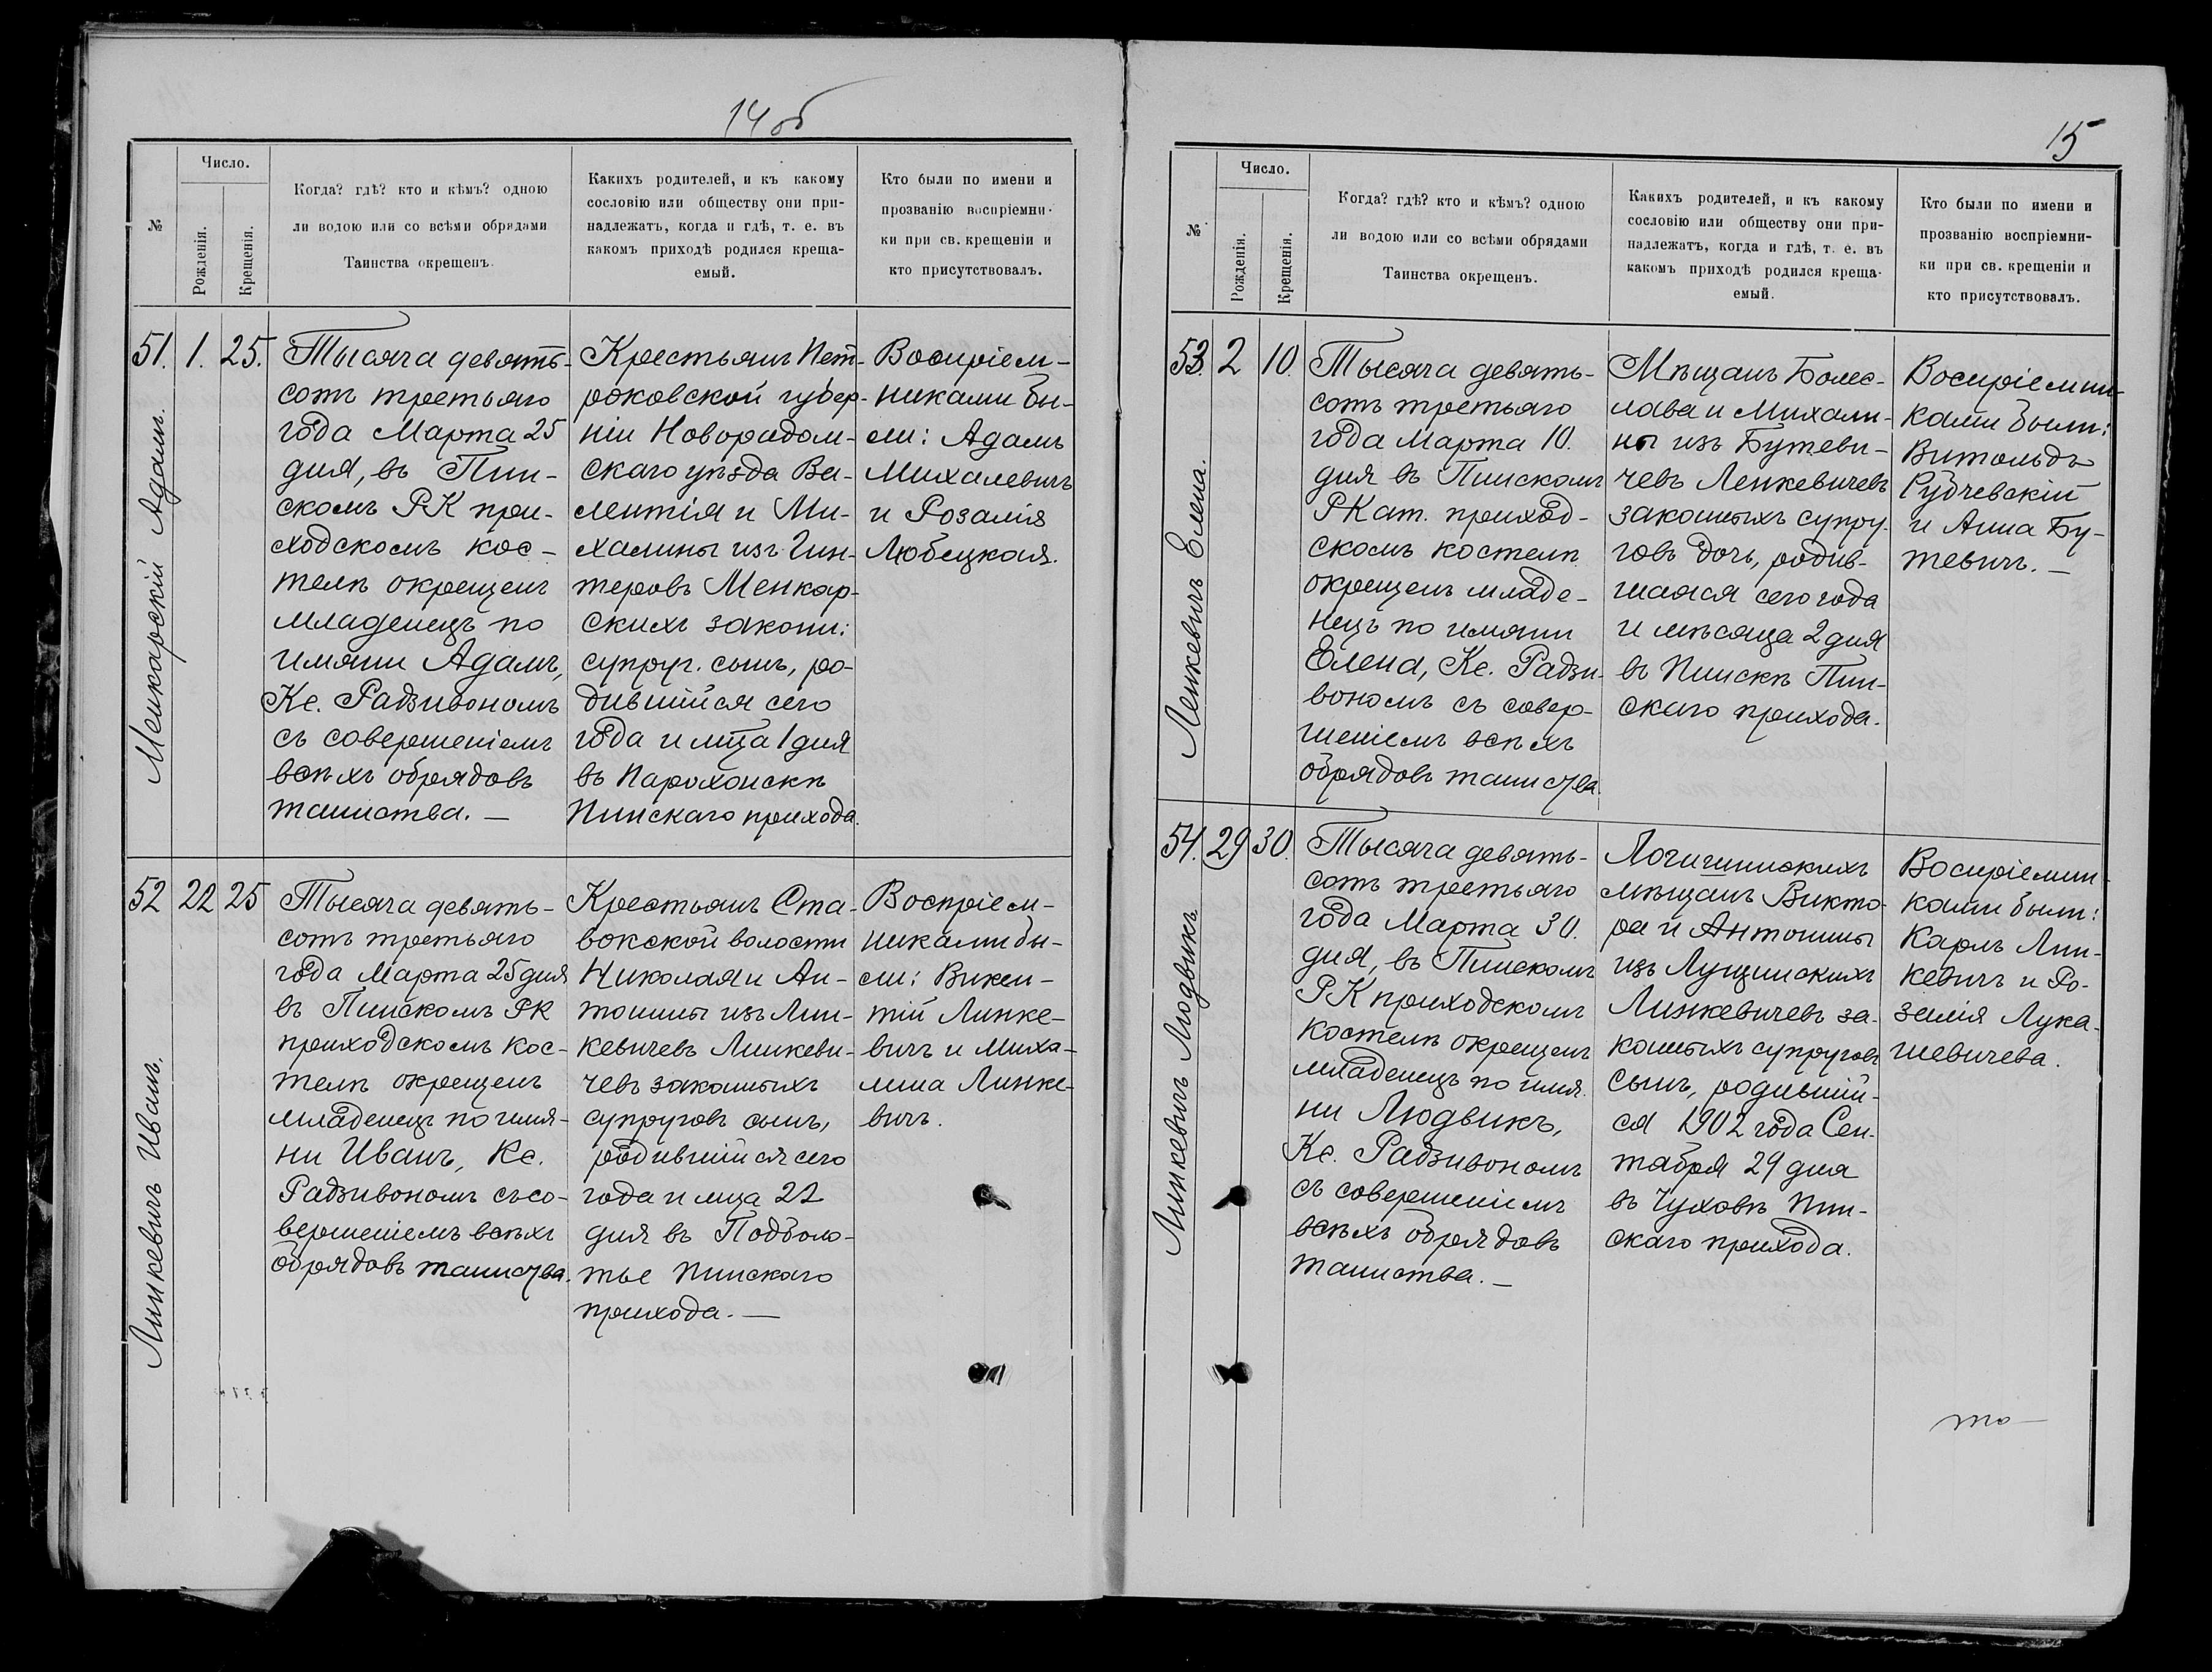 14 об
№
Число.
Рожденія.
Крещенія.
Когда? гдѣ? кто и кѣмъ? одною
ли водою или со всѣми обрядами
Таинства окрещенъ.
Какихъ родителей, и къ какому
сословію или обществу они при-
надлежатъ, когда и гдѣ, т. е. въ
какомъ приходѣ родился креща-
емый.
Кто были по имени и
прозванію воспріемни-
ки при св. крещеніи и
кто присутствовалъ.
51. 1. 25.
Менкарскій Адамъ.
Тысяча девять-
сотъ третьяго
года Марта 25
дня, въ Пин-
скомъ РК при-
ходскомъ кос-
телѣ окрещенъ
младенецъ по
имяни Адамъ,
Кс. Радзивономъ
съ совершеніемъ
всѣхъ обрядовъ
таинства. —
Крестьянъ Пет-
роковской губер-
ніи Новорадом-
скаго уѣзда Ва-
лентія и Ми-
халины изъ Гин-
теровъ Менкар-
скихъ законн:
супруг. сынъ, ро-
дившійся сего
года и мца 1 дня
въ Парохонскѣ
Пинскаго прихода.
Воспріем-
никами бы-
ли: Адамъ
Михалевичъ
и Розалія
Любецкая.
52 22 25
Линкевичъ Иванъ.
Тысяча девять-
сотъ третьяго
года Марта 25 дня
въ Пинскомъ РК
приходскомъ кос-
телѣ окрещенъ
младенецъ по имя-
ни Иванъ, Кс.
Радзивономъ съ со-
вершеніемъ всѣхъ
обрядовъ таинства.
Крестьянъ Ста-
вокской волости
Николая и Ан-
тонины изъ Лин-
кевичевъ Линкеви-
чевъ законныхъ
супруговъ сынъ,
родившійся сего
года и мца 22
дня въ Подболо-
тье Пинскаго
прихода. —
Воспріем-
никами бы-
ли: Викен-
тій Линке-
вичъ и Миха-
лина Линке-
вичъ.
15
№
Число.
Рожденія.
Крещенія.
Когда? гдѣ? кто и кѣмъ? одною
ли водою или со всѣми обрядами
Таинства окрещенъ.
Какихъ родителей, и къ какому
сословію или обществу они при-
надлежатъ, когда и гдѣ, т. е. въ
какомъ приходѣ родился креща-
емый.
Кто были по имени и
прозванію воспріемни-
ки при св. крещеніи и
кто присутствовалъ.
53. 2 10.
Ленкевичъ Елена.
Тысяча девять-
сотъ третьяго
года Марта 10.
дня въ Пинскомъ
РКат. приход-
скомъ костелѣ
окрещенъ младе-
нецъ по имяни
Елена, Кс. Радзи-
вономъ съ совер-
шеніемъ всѣхъ
обрядовъ таинства.
Мѣщанъ Болес-
лава и Михали-
ны изъ Бутеви-
чевъ Ленкевичевъ
законныхъ супру-
говъ дочь, родив-
шаяся сего года
и мѣсяца 2 дня
въ Пинскѣ Пин-
скаго прихода.
Воспріемни-
ками были:
Витольдъ
Рудчевскій
и Анна Бу-
тевичъ. —
54. 29 30.
Линкевичъ Людвикъ.
Тысяча девять-
сотъ третьяго
года Марта 30.
дня, въ Пинскомъ
РК приходскомъ
костелѣ окрещенъ
младенецъ по имя-
ни Людвикъ,
Кс. Радзивономъ
съ совершеніемъ
всѣхъ обрядовъ
таинства. —
Логишинскихъ
мѣщанъ Викто-
ра и Антонины
изъ Лущинскихъ
Линкевичевъ за-
конныхъ супруговъ
сынъ, родившій-
ся 1902 года Сен-
тября 29 дня
въ Чуховѣ Пин-
скаго прихода.
Воспріемни-
ками были:
Карлъ Лин-
кевичъ и Ро-
залія Лука-
шевичева.